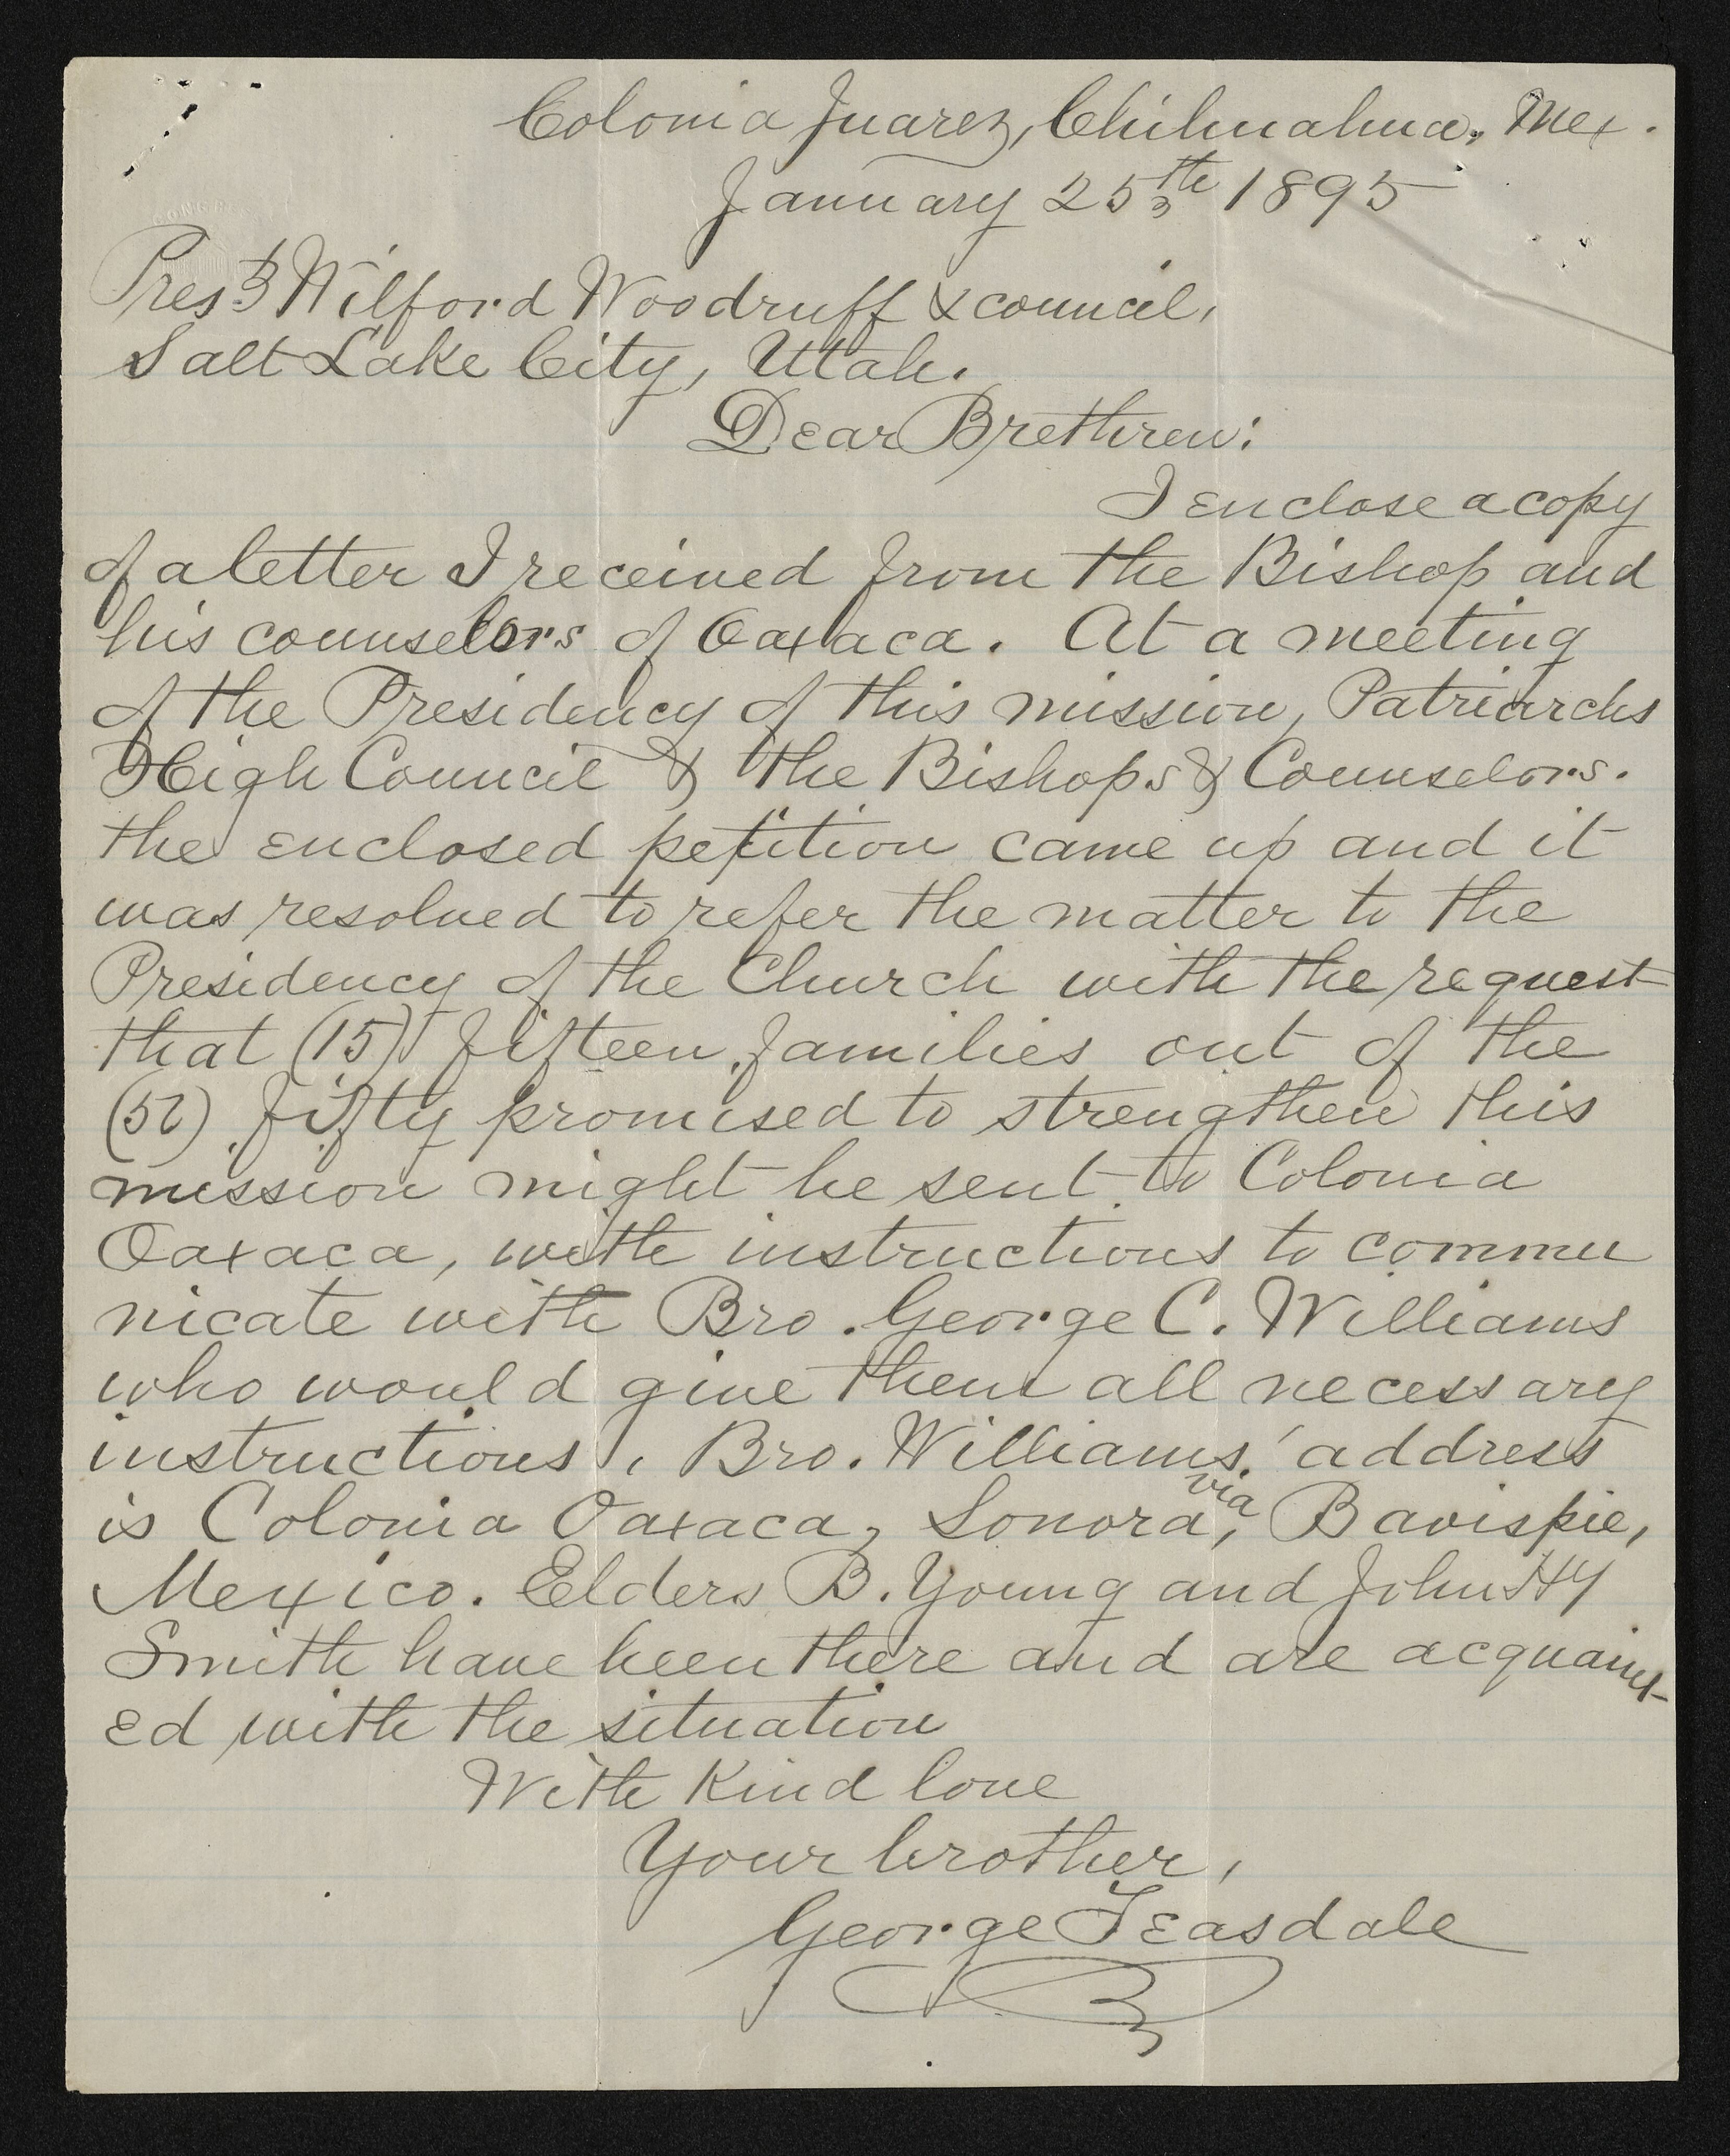 Colonia Juarez, Chihuahua, Mex.
January 25th 1895
Prest Wilford Woodruff & council,
Salt Lake City, Utah.
Dear Brethren:
I enclose a copy
of a letter I received from the Bishop and
his counselors of Oaxaca. At a meeting
of the Presidency of this mission, Patriarchs
High Council & the Bishops & Counselors.
the enclosed petition came up and it
was resolved to refer the matter to the
Presidency of the Church with the request
that (15) fifteen families out of the
(50) fifty promised to strengthen this
mission might be sent to Colonia
Oaxaca, with instructions to commu
nicate with Bro. George C. Williams
who would give them all necessary
instructions, Bro. Williams' address
is Colonia Oaxaca, Sonora, via Bavispie,
Mexico. Elders B. Young and John Hy
Smith have been there and are acquaint-
ed with the situation
With Kind love
Your brother,
George Teasdale